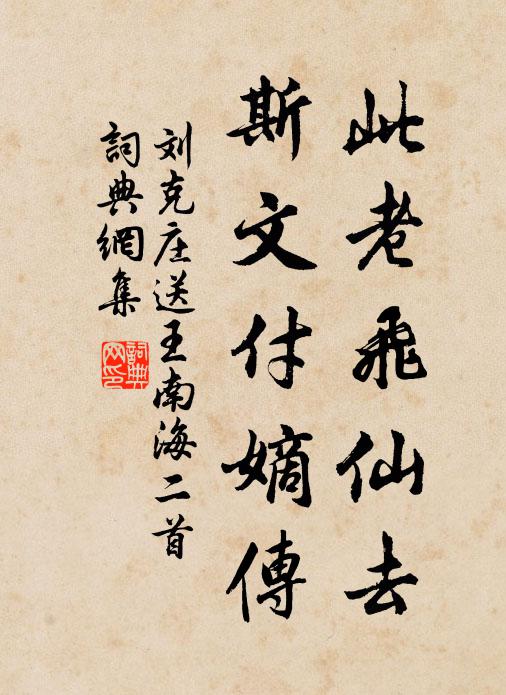 此老飛仙去
斯文付嫡傳
刘克庄送王南海二首
詞典網集
詞典網印